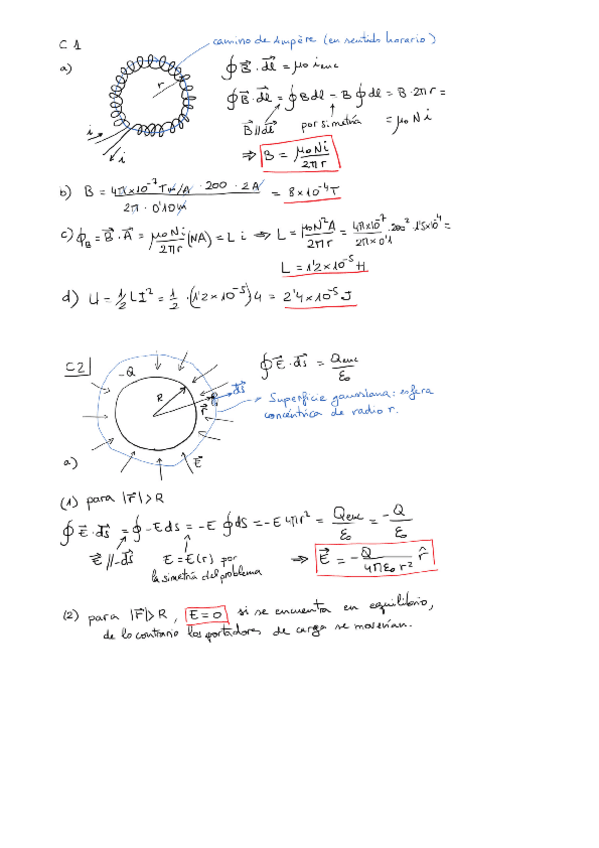 C 1
camino de Ampère (en sentido horario)
a)
r
i
i
∮ B⃗ · dl⃗ = μ₀ i_enc
∮ B⃗ · dl⃗ = ∮ B dl = B ∮ dl = B · 2π r =
B⃗ // dl⃗ por simetría = μ₀ N i
⇒ B = μ₀ N i / 2π r
b) B = 4π×10⁻⁷ T m/A · 200 · 2A / 2π · 0'10 m = 8×10⁻⁴ T
c) ϕ_B = B⃗ · A⃗ = μ₀ N i / 2π r (NA) = L i ⇒ L = μ₀ N² A / 2π r = 4π×10⁻⁷ · 200² · 1'5×10⁻⁴ / 2π × 0'1 =
L = 1'2×10⁻⁵ H
d) U = 1/2 L I² = 1/2 · (1'2×10⁻⁵) 4 = 2'4×10⁻⁵ J
C2
-Q
R
r⃗
dS⃗
E⃗
∮ E⃗ · dS⃗ = Q_enc / ε₀
Superficie gaussiana: esfera
concéntrica de radio r.
a)
(1) para |r⃗| > R
∮ E⃗ · dS⃗ = ∮ -E dS = -E ∮ dS = -E 4π r² = Q_enc / ε₀ = -Q / ε₀
E⃗ // -dS⃗ E = E(r) por
la simetría del problema
⇒ E⃗ = -Q / 4π ε₀ r² r̂
(2) para |r⃗| > R, E = 0 si se encuentra en equilibrio,
de lo contrario los portadores de carga se moverían.